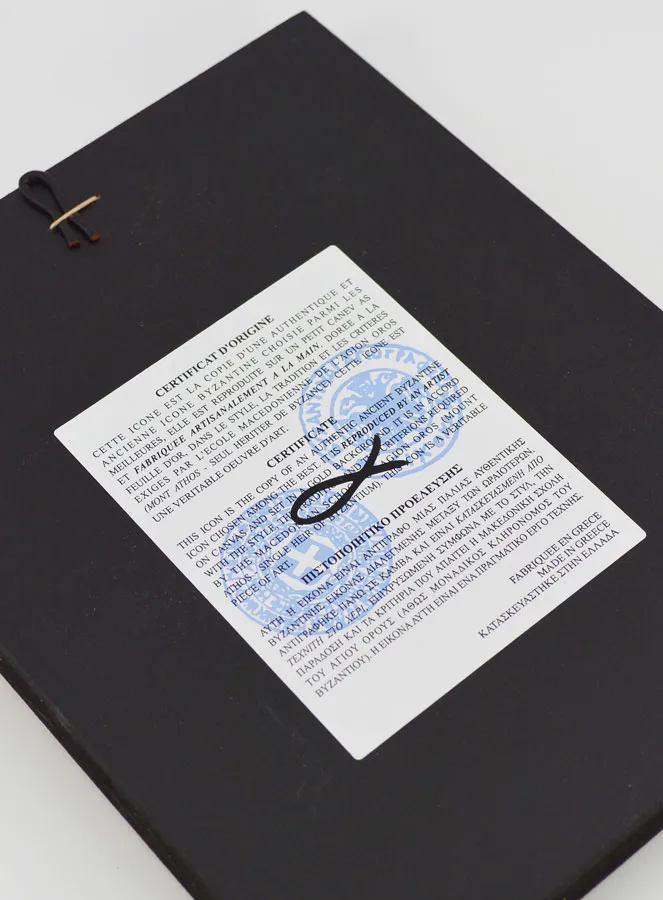 CERTIFICAT D'ORIGINE
CETTE ICONE EST LA COPIE D'UNE AUTHENTIQUE ET
ANCIENNE ICONE BYZANTINE CHOISIE PARMI LES
MEILLEURES, ELLE EST REPRODUITE SUR UN PETIT CANEV AS
ET FABRIQUEE ARTISANALEMENT À LA MAIN, DOREE A LA
FEUILLE D'OR, DANS LE STYLE, LA TRADITION ET LES CRITERES
EXIGES PAR L'ECOLE MACEDONIENNE DE L'AGION OROS
(MONT ATHOS - SEUL HERITIER DE BYZANCE) CETTE ICONE EST
UNE VERITABLE OEUVRE D'ART.
CERTIFICATE
THIS ICON IS THE COPY OF AN AUTHENTIC ANCIENT BYZANTINE
ICON CHOSEN AMONG THE BEST. IT IS REPRODUCED BY AN ARTIST
ON CANVAS AND SET IN A GOLD BACKGROUND IT IS IN ACCORD
WITH THE STYLE, TRADITION AND THE CRITERION REQUIRED
BY THE MACEDONIAN SCHOOL OF AGION OROS (MOUNT
ATHOS - SINGLE HEIR OF BYZANTIUM). THIS ICON IS A VERITABLE
PIECE OF ART.
ΠΙΣΤΟΠΟΙΗΤΙΚΟ ΠΡΟΕΛΕΥΣΗΣ
ΑΥΤΗ Η ΕΙΚΟΝΑ ΕΙΝΑΙ ΑΝΤΙΓΡΑΦΟ ΜΙΑΣ ΠΑΛΙΑΣ ΑΥΘΕΝΤΙΚΗΣ
ΒΥΖΑΝΤΙΝΗΣ ΕΙΚΟΝΑΣ ΔΙΑΛΕΓΜΕΝΗΣ ΜΕΤΑΞΥ ΤΩΝ ΩΡΑΙΟΤΕΡΩΝ.
ΑΝΤΙΓΡΑΦΗΚΕ ΠΑΝΩ ΣΕ ΚΑΜΒΑ ΚΑΙ ΕΙΝΑΙ ΚΑΤΑΣΚΕΥΑΣΜΕΝΗ ΑΠΟ
ΤΕΧΝΙΤΗ ΣΤΟ ΧΕΡΙ, ΕΠΙΧΡΥΣΩΜΕΝΗ ΣΥΜΦΩΝΑ ΜΕ ΤΟ ΣΤΥΛ, ΤΗΝ
ΠΑΡΑΔΟΣΗ ΚΑΙ ΤΑ ΚΡΙΤΗΡΙΑ ΠΟΥ ΑΠΑΙΤΕΙ Η ΜΑΚΕΔΟΝΙΚΗ ΣΧΟΛΗ
ΤΟΥ ΑΓΙΟΥ ΟΡΟΥΣ (ΑΘΩΣ ΜΟΝΑΔΙΚΟΣ ΚΛΗΡΟΝΟΜΟΣ ΤΟΥ
ΒΥΖΑΝΤΙΟΥ). Η ΕΙΚΟΝΑ ΑΥΤΗ ΕΙΝΑΙ ΕΝΑ ΠΡΑΓΜΑΤΙΚΟ ΕΡΓΟ ΤΕΧΝΗΣ.
FABRIQUEE EN GRECE
MADE IN GREECE
ΚΑΤΑΣΚΕΥΑΣΤΗΚΕ ΣΤΗΝ ΕΛΛΑΔΑ